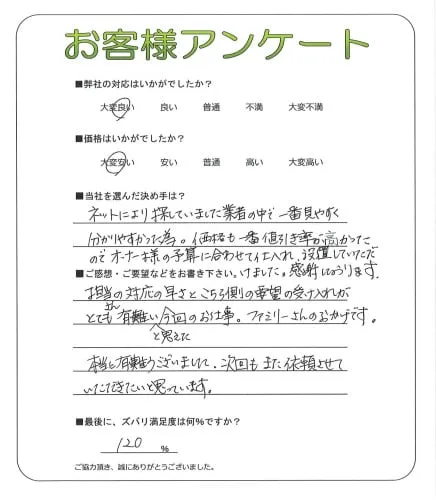 お客様アンケート
■弊社の対応はいかがでしたか?
大変良い 良い 普通 不満 大変不満
■価格はいかがでしたか?
大変安い 安い 普通 高い 大変高い
■当社を選んだ決め手は?
ネットにより探していました業者の中で一番見やすく
分かりやすかった為。価格も一番値引き率が高かった
のでオーナー様の予算に合わせて仕入れ、設置していただ
■ご感想・ご要望などをお書き下さい。
けました。感謝しております。
担当さんの対応の早さとこちら側の要望の受け入れが
とても有難いと思えた今回のお仕事。ファミリーさんのおかげです。
本当に有難うございました、次回もまた依頼させて
いただきたいと思っています。
■最後に、ズバリ満足度は何%ですか?
120 %
ご協力頂き、誠にありがとうございました。